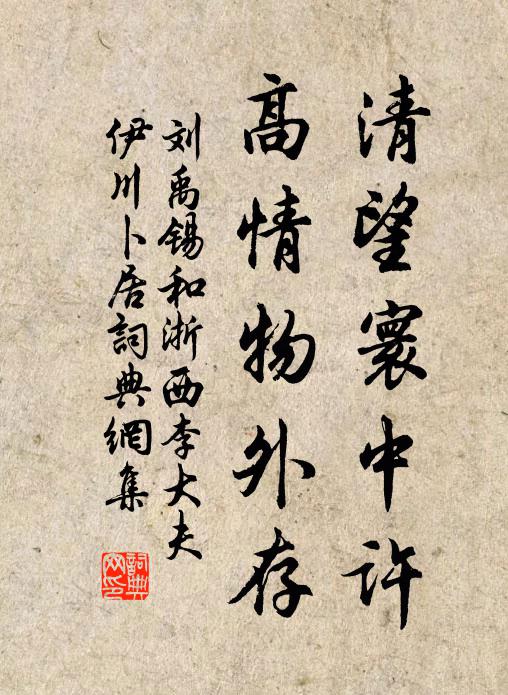 清望寰中许
高情物外存
刘禹锡和浙西李大夫
伊川卜居词典網集
詞典网印